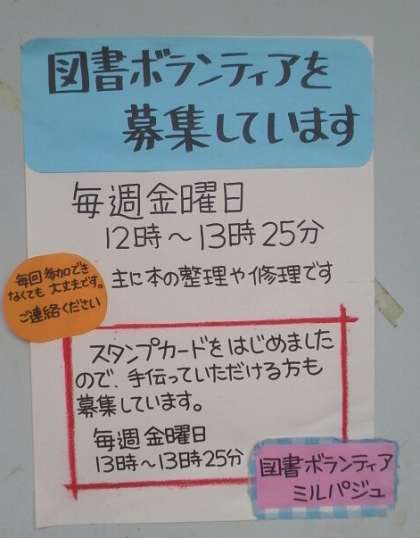 図書ボランティアを
募集しています
毎週金曜日
12時～13時25分
毎回参加でき
なくても大丈夫です。
ご連絡ください
主に本の整理や修理です
スタンプカードをはじめました
ので、手伝っていただける方も
募集しています。
毎週金曜日
13時～13時25分
図書ボランティア
ミルパジュ